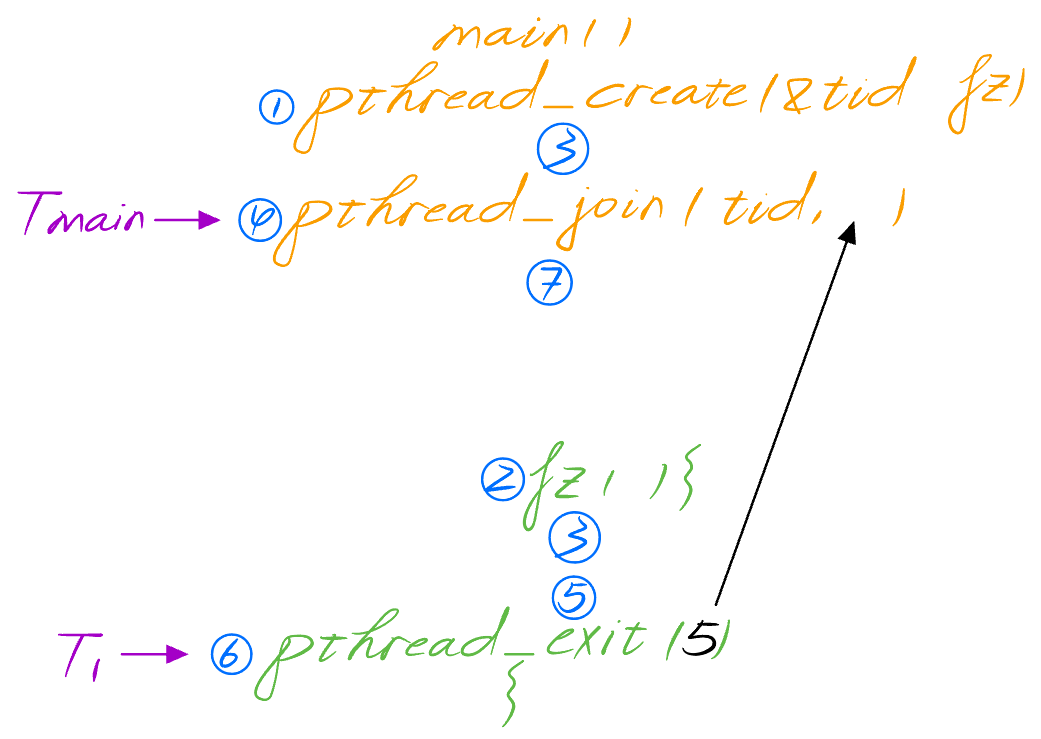 main()
① pthread_create(&tid fz)
③
Tmain → ④ pthread_join(tid, )
⑦
② fz( ){
③
⑤
T₁ → ⑥ pthread_exit(5)
{